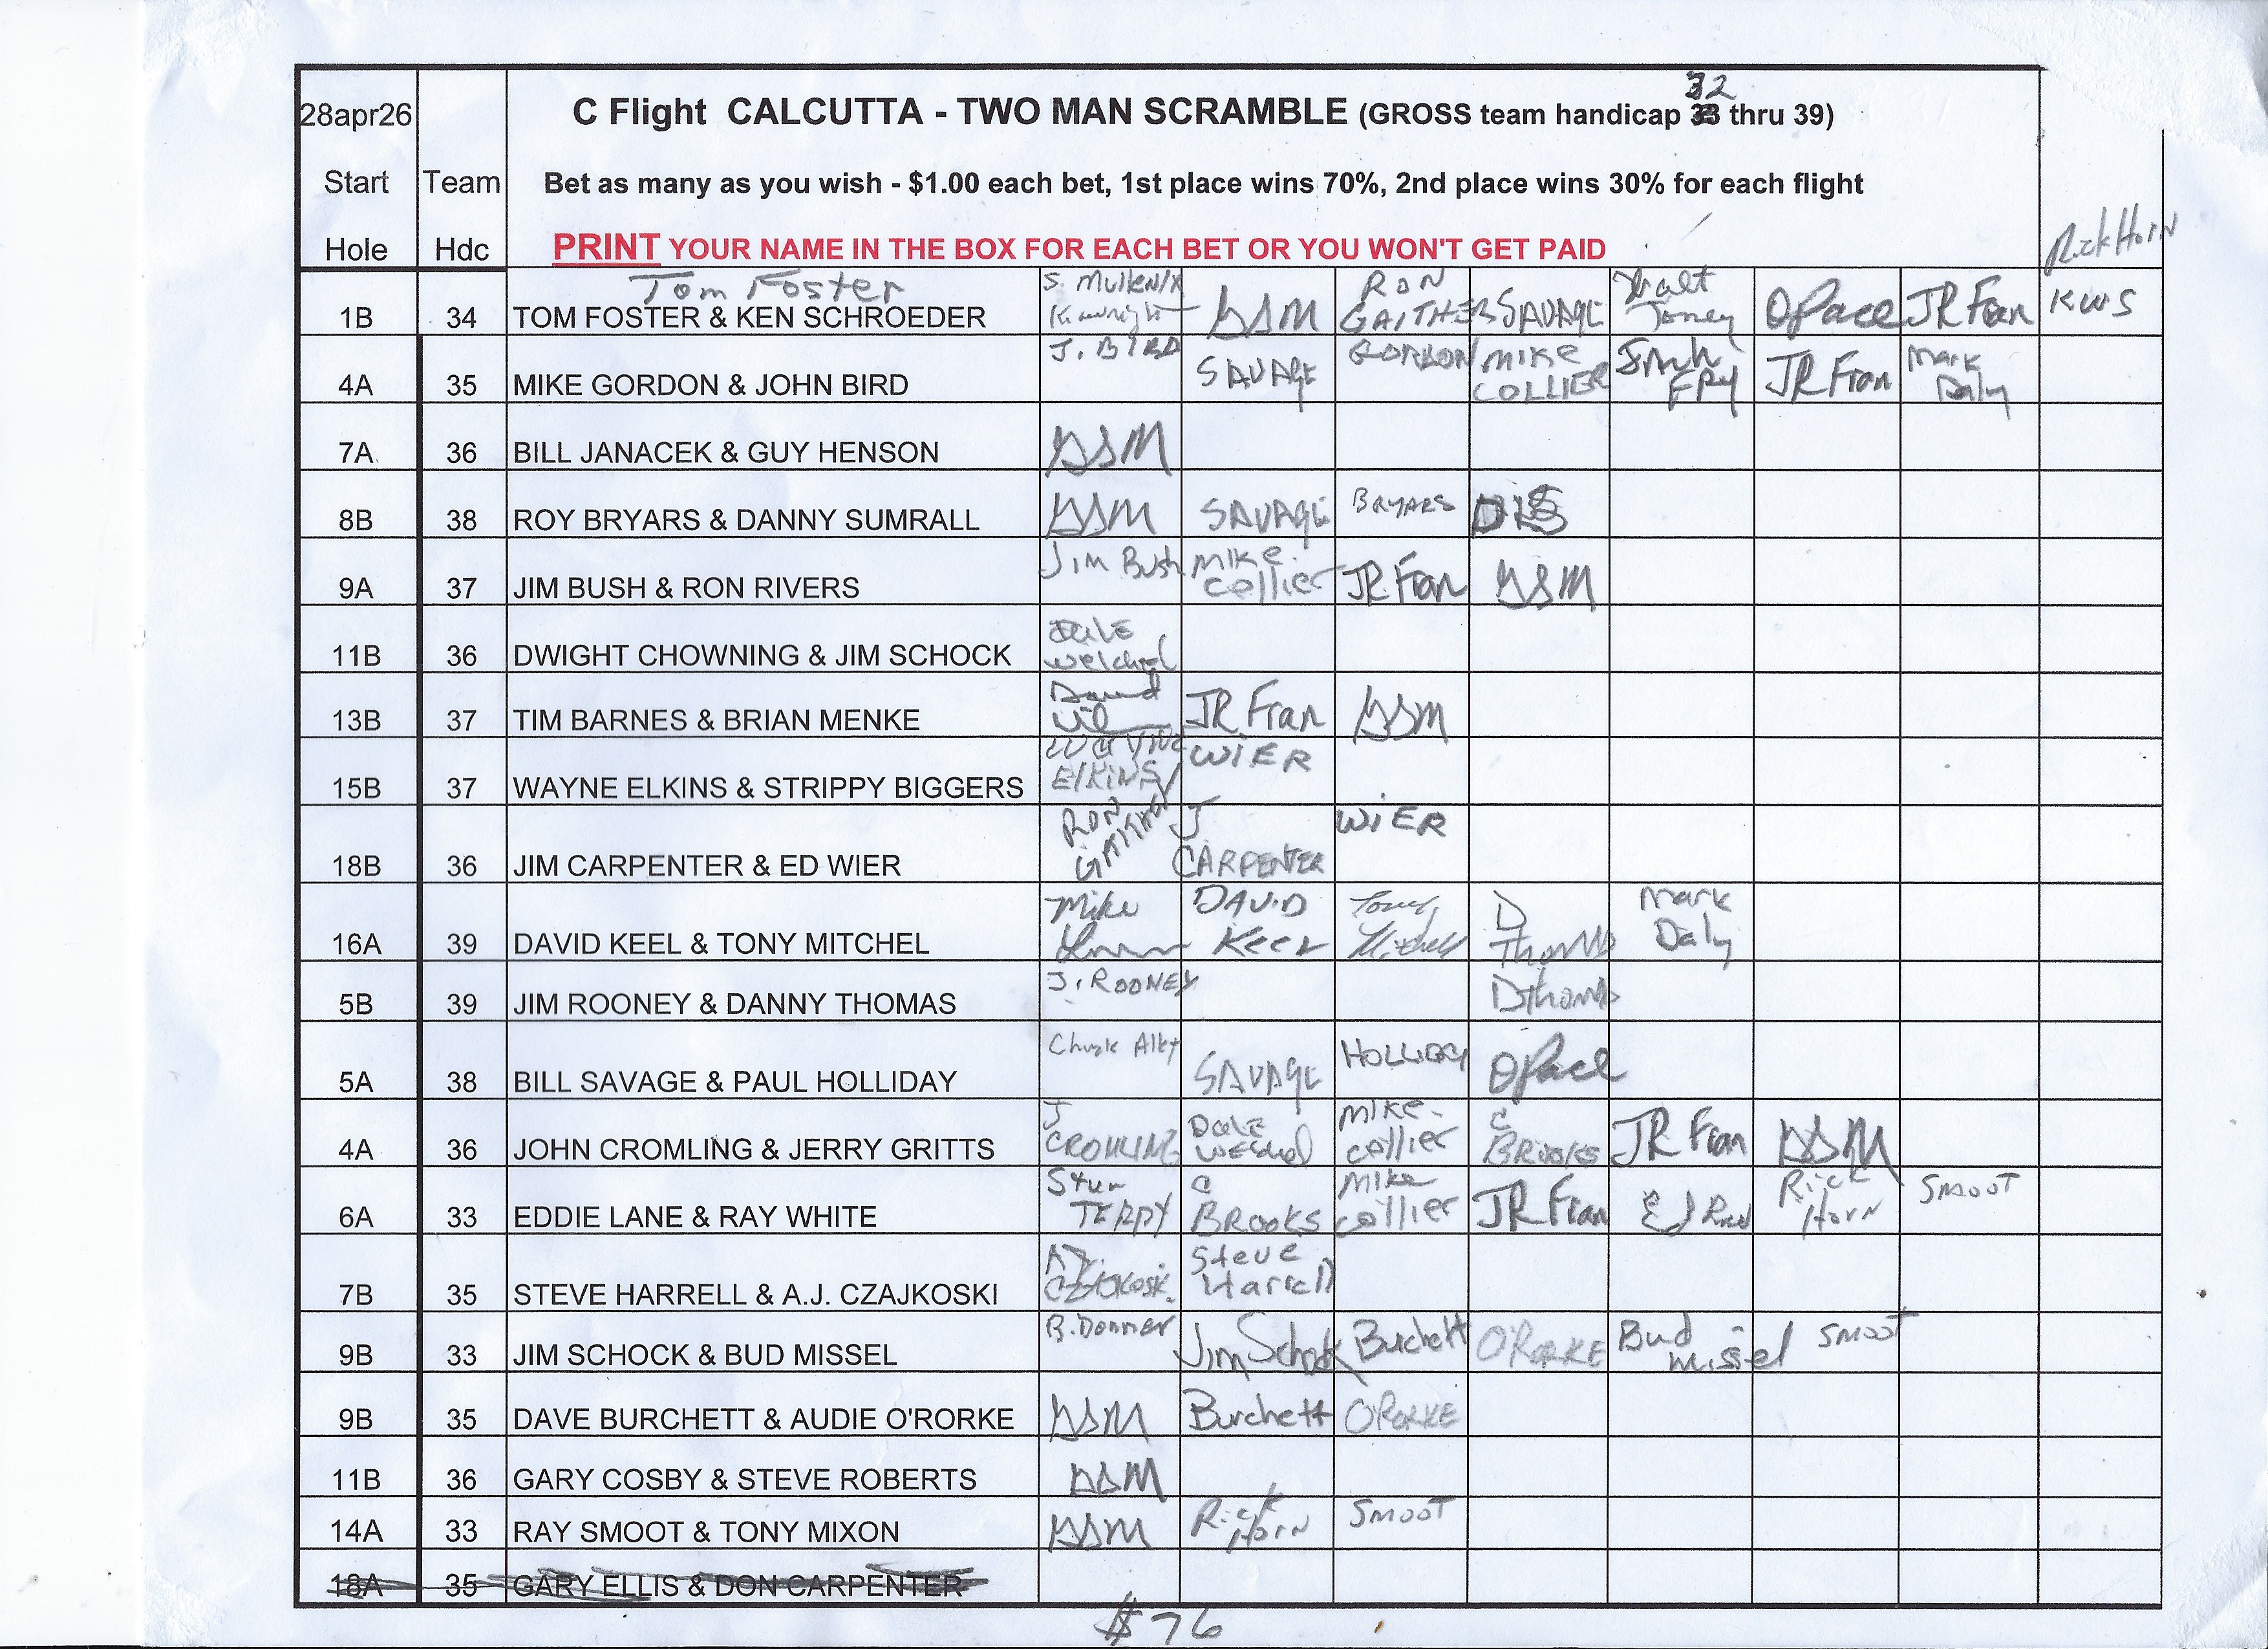 28apr26 C Flight CALCUTTA - TWO MAN SCRAMBLE (GROSS team handicap 32 thru 39)
Start Team Bet as many as you wish - $1.00 each bet, 1st place wins 70%, 2nd place wins 30% for each flight
Hole Hdc PRINT YOUR NAME IN THE BOX FOR EACH BET OR YOU WON'T GET PAID Rick Horn
Tom Foster S. Mullenix RON Walt
1B 34 TOM FOSTER & KEN SCHROEDER K. wright GSM GAITHER SAVAGE Toney OPace JR Fran KWS
4A 35 MIKE GORDON & JOHN BIRD J. BIRD SAVAGE GORDON MIKE COLLIER FRY JR Fran Mark Daly
7A 36 BILL JANACEK & GUY HENSON GSM
8B 38 ROY BRYARS & DANNY SUMRALL GSM SAVAGE BRYARS DLS
9A 37 JIM BUSH & RON RIVERS Jim Bush Mike Collier JR Fran GSM
11B 36 DWIGHT CHOWNING & JIM SCHOCK Dale Welchel
13B 37 TIM BARNES & BRIAN MENKE David JR Fran GSM
15B 37 WAYNE ELKINS & STRIPPY BIGGERS WAYNE ElKiNS WIER
18B 36 JIM CARPENTER & ED WIER RON GAITHER J CARPENTER WIER
16A 39 DAVID KEEL & TONY MITCHEL Mike DAVID Keel Tony Mitchell D Thomas Mark Daly
5B 39 JIM ROONEY & DANNY THOMAS J. ROONEY D Thomas
5A 38 BILL SAVAGE & PAUL HOLLIDAY Chuck Alley SAVAGE HOLLIDAY OPace
4A 36 JOHN CROMLING & JERRY GRITTS J CROMLING Dale Welchel Mike Collier C BROOKS JR Fran GSM
6A 33 EDDIE LANE & RAY WHITE Stew TERRY C BROOKS Mike Collier JR Fran Ed Rick Horn SMOOT
7B 35 STEVE HARRELL & A.J. CZAJKOSKI A.J. CZAJKOSKI Steve Harrell
9B 33 JIM SCHOCK & BUD MISSEL B. Donner Jim Schock Burchett O'RORKE Bud Missel SMOOT
9B 35 DAVE BURCHETT & AUDIE O'RORKE GSM Burchett O'RORKE
11B 36 GARY COSBY & STEVE ROBERTS GSM
14A 33 RAY SMOOT & TONY MIXON GSM Rick Horn SMOOT
18A 35 GARY ELLIS & DON CARPENTER
$76